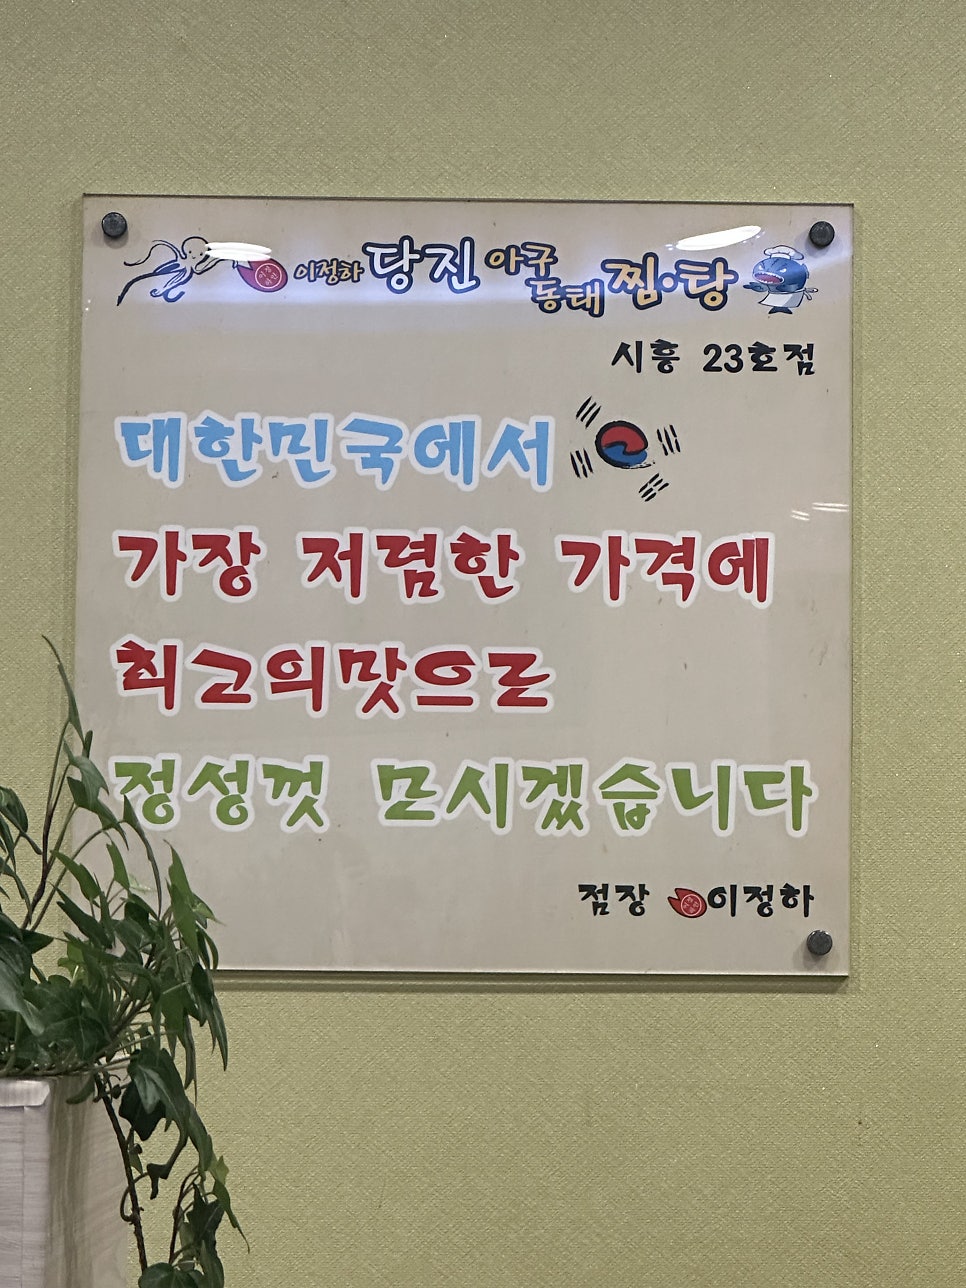 이정하 당진 아구 동태 찜·탕
시흥 23호점
대한민국에서
가장 저렴한 가격에
최고의맛으로
정성껏 모시겠습니다
점장 이정하